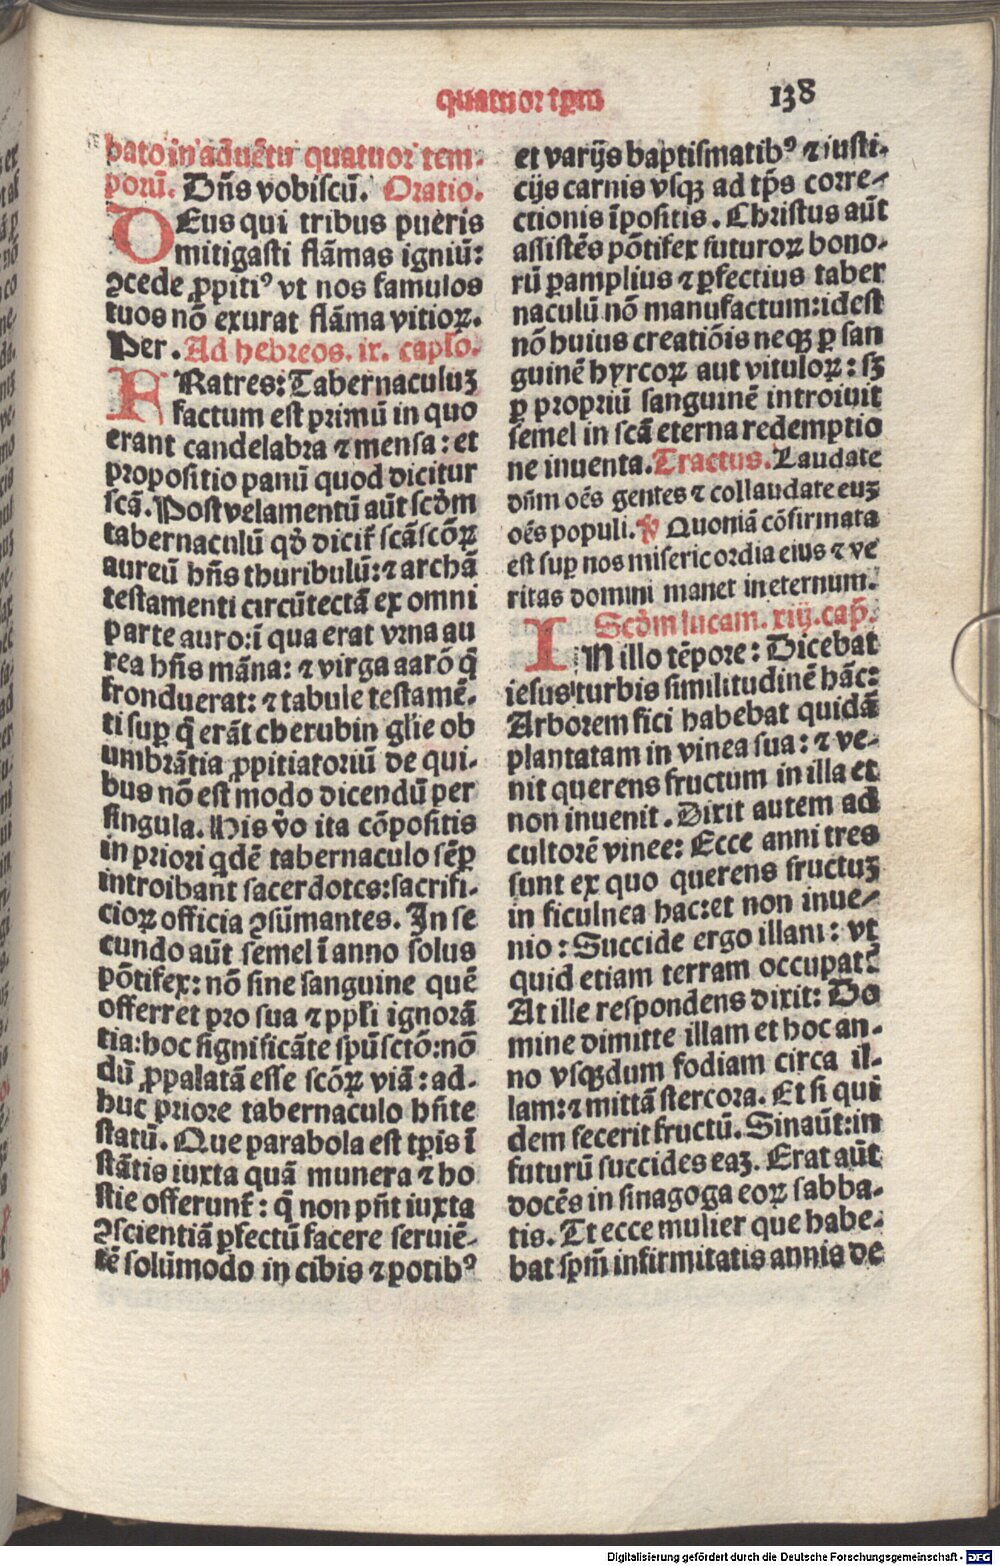 quatuor tꝑm
138
bato in aduētu quatuor tem-
porū. Dn̄s vobiscū. Oratio.
DEus qui tribus pueris
mitigasti flāmas igniū:
ꝯcede ꝓpitiꝰ vt nos famulos
tuos nō exurat flāma vitioꝝ.
Per. Ad hebreos. ix. capło.
FRatres: Tabernaculuꝫ
factum est primū in quo
erant candelabra ⁊ mensa: et
propositio panū quod dicitur
scā. Post velamentū aūt scd̄m
tabernaculū qd̄ dicit̄ scā scōꝝ
aureū hn̄s thuribulū: ⁊ archā
testamenti circūtectā ex omni
parte auro: ī qua erat vrna au
rea hn̄s māna: ⁊ virga aarō q̄
fronduerat: ⁊ tabule testamē-
ti suꝑ q̄ erāt cherubin glie ob
umbrātia ꝓpitiatoriū de qui-
bus nō est modo dicendū per
singula. His v̄o ita cōpositis
in priori qdē tabernaculo sēꝑ
introibant sacerdotes: sacrifi-
cioꝝ officia ꝯsūmantes. In se
cundo aūt semel ī anno solus
pōtifex: nō sine sanguine quē
offerret pro sua ⁊ ppłi ignorā
tia: hoc significāte spū sctō: nō
dū ꝓpalatā esse scōꝝ viā: ad-
huc priore tabernaculo hn̄te
statū. Que parabola est tꝑis ī
stātis iuxta quā munera ⁊ ho
stie offerunt̄: q̄ non pn̄t iuxta
ꝯscientiā ꝑfectū facere seruiē-
tē solūmodo in cibis ⁊ potibꝰ
et varijs baptismatibꝰ ⁊ iusti-
cijs carnis vsqꝫ ad tp̄s corre-
ctionis īpositis. Christus aūt
assistēs pōtifex futuroꝝ bono-
rū ꝑ amplius ⁊ ꝑfectius taber
naculū nō manufactum: idest
nō huius creatiōis neqꝫ ꝑ san
guinē hyrcoꝝ aut vituloꝝ: sꝫ
ꝑ propriū sanguinē introiuit
semel in scā eterna redemptio
ne inuenta. Tractus. Laudate
dn̄m oēs gentes ⁊ collaudate euꝫ
oēs populi. ℣ Quoniā cōfirmata
est suꝑ nos misericordia eius ⁊ ve
ritas domini manet in eternum.
Scd̄m lucam. xiij. cap̄.
IN illo tēpore: Dicebat
iesus turbis similitudinē hāc:
Arborem fici habebat quidā
plantatam in vinea sua: ⁊ ve-
nit querens fructum in illa et
non inuenit. Dixit autem ad
cultorē vinee: Ecce anni tres
sunt ex quo querens fructuꝫ
in ficulnea hac: et non inue-
nio: Succide ergo illam: vt
quid etiam terram occupat?
At ille respondens dixit: Do
mine dimitte illam et hoc an-
no vsqꝫ dum fodiam circa il-
lam: ⁊ mittā stercora. Et si qui
dem fecerit fructū. Sin aūt: in
futurū succides eaꝫ. Erat aūt
docēs in sinagoga eoꝝ sabba-
tis. Et ecce mulier que habe-
bat sp̄m infirmitatis annis de
Digitalisierung gefördert durch die Deutsche Forschungsgemeinschaft - DFG